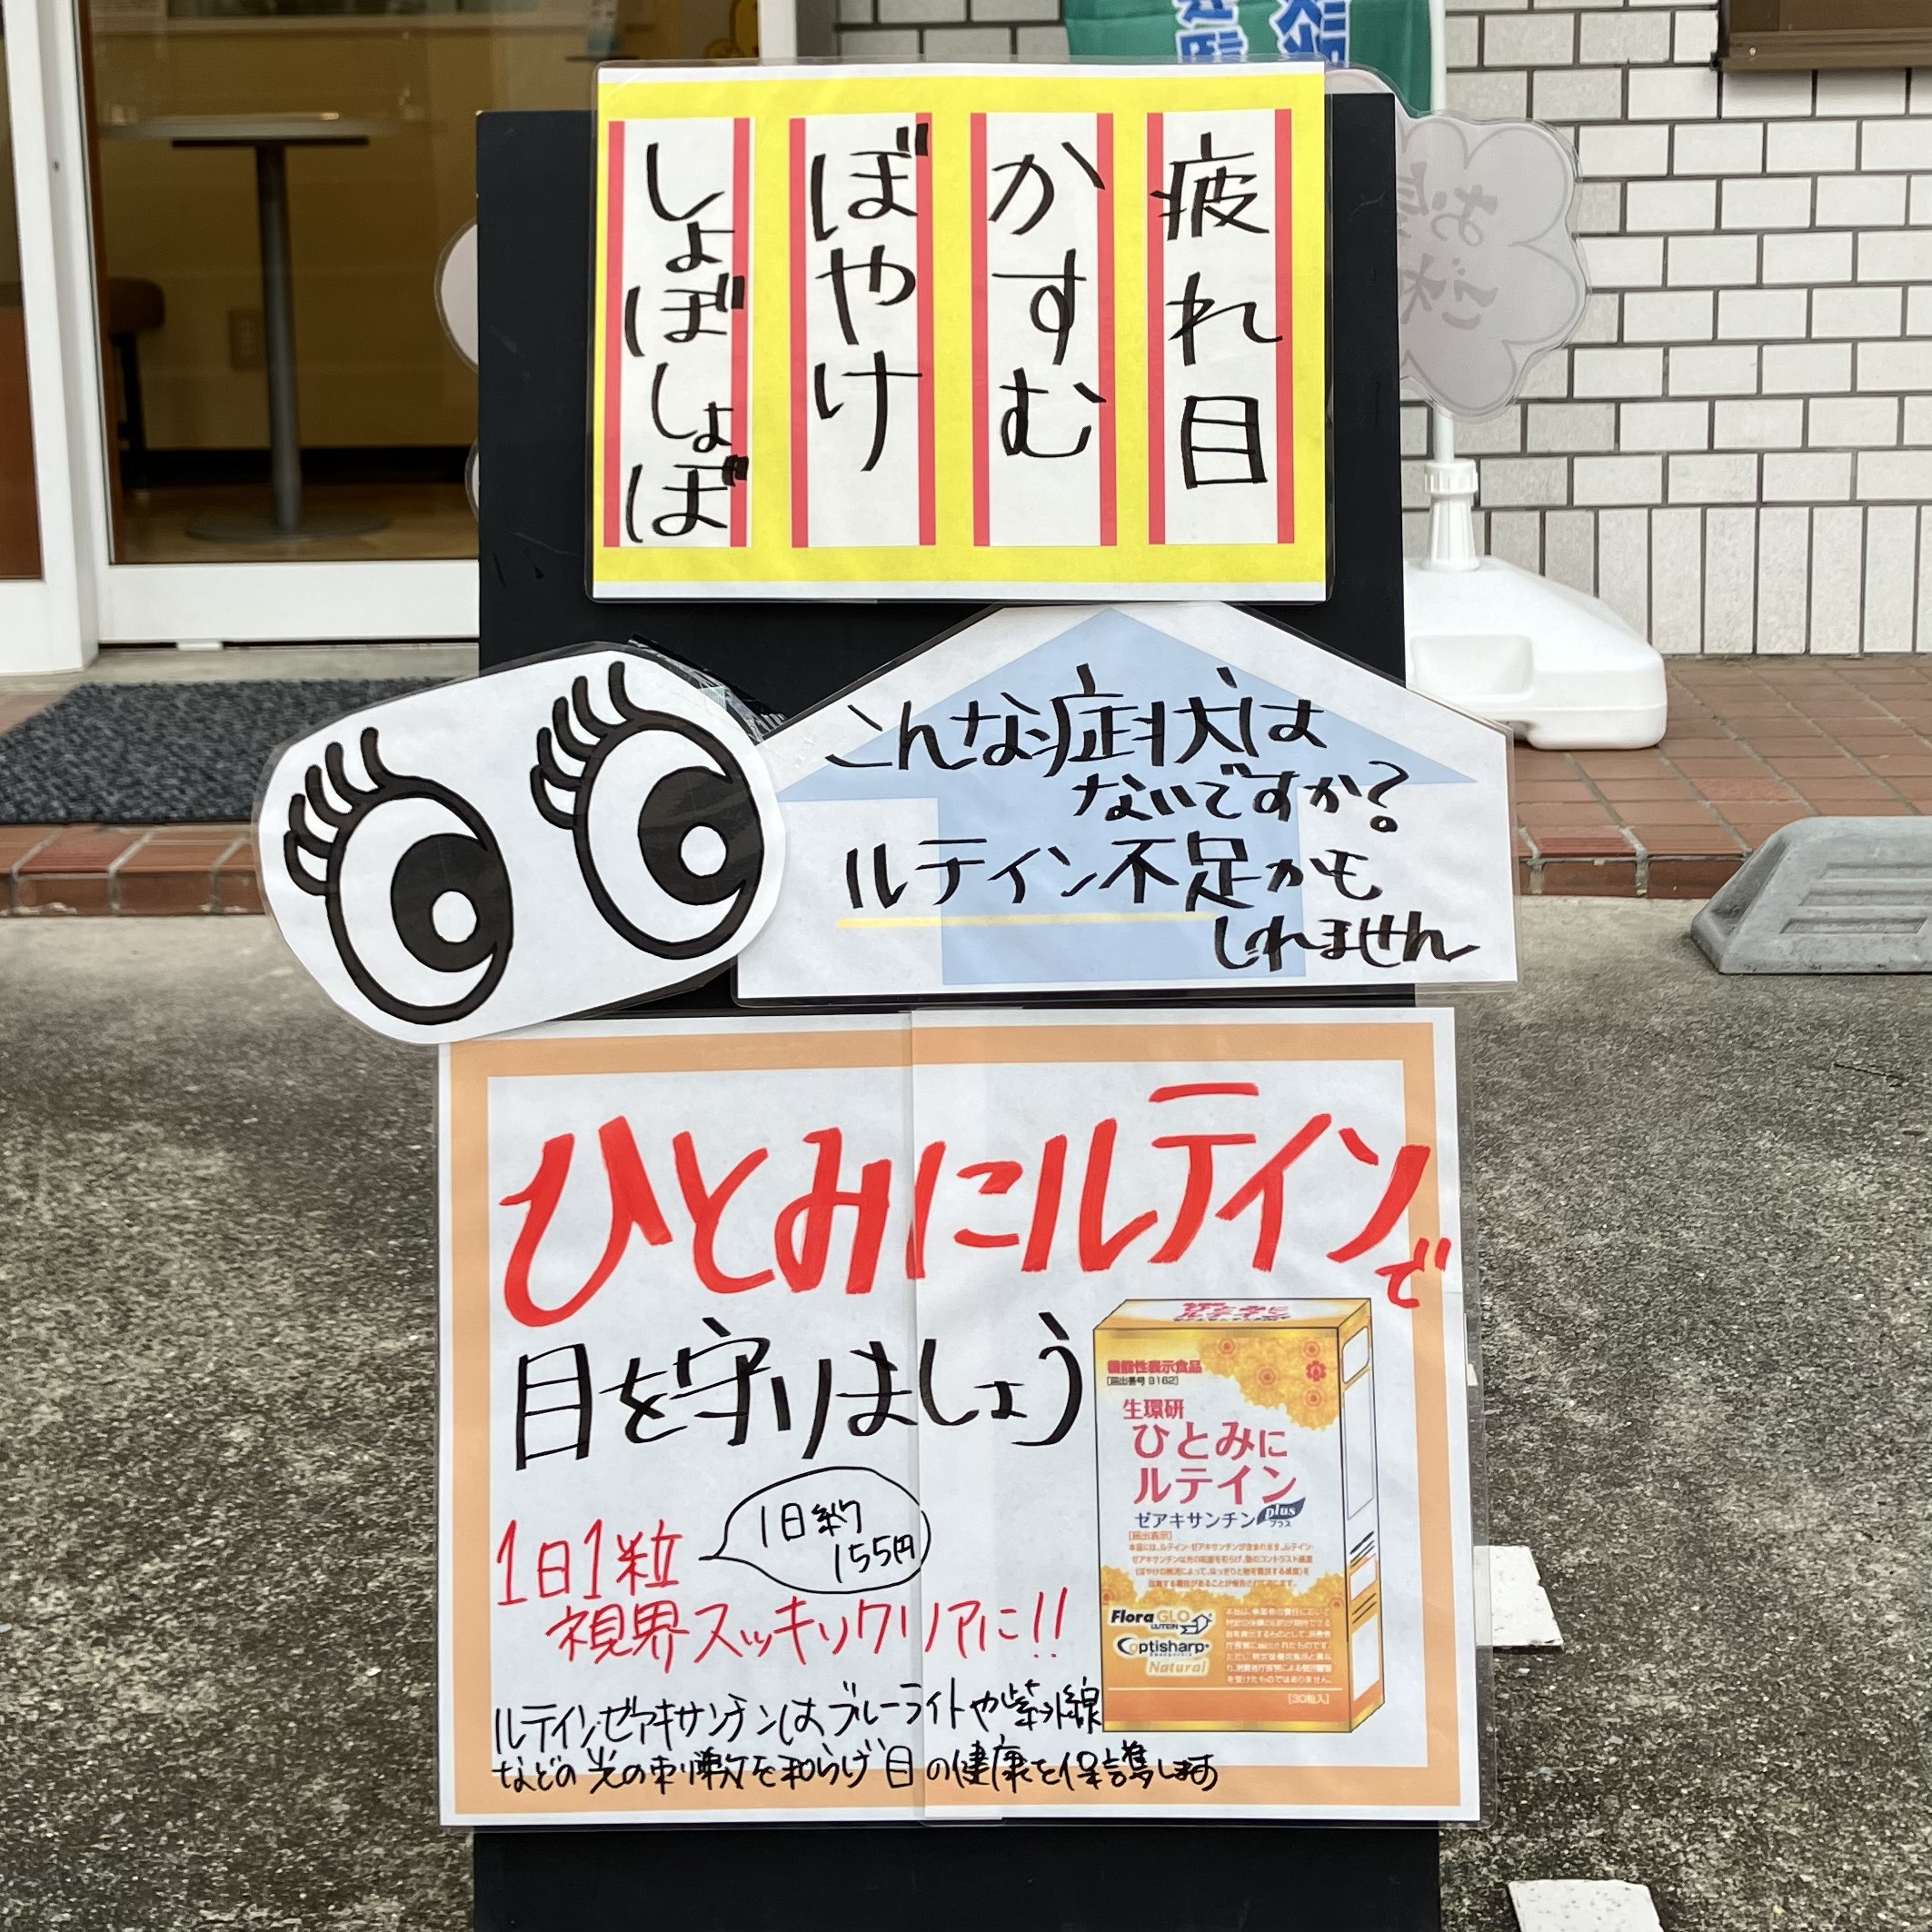 疲れ目
かすむ
ぼやけ
しょぼしょぼ
こんな症状は
ないですか?
ルテイン不足かも
しれません
ひとみにルテインで
目を守りましょう
1日1粒
1日約
155円
視界スッキリクリアに!!
ルテイン、ゼアキサンチンは、ブルーライトや紫外線
などの光の刺激を和らげ目の健康を保護します
ひとみに
ルテイン
機能性表示食品
[届出番号 B162]
生環研
ひとみに
ルテイン
ゼアキサンチン plus
プラス
[届出表示]
本品には、ルテイン・ゼアキサンチンが含まれます。ルテイン・
FloraGLO
LUTEIN
Optisharp
Natural
[30粒入]